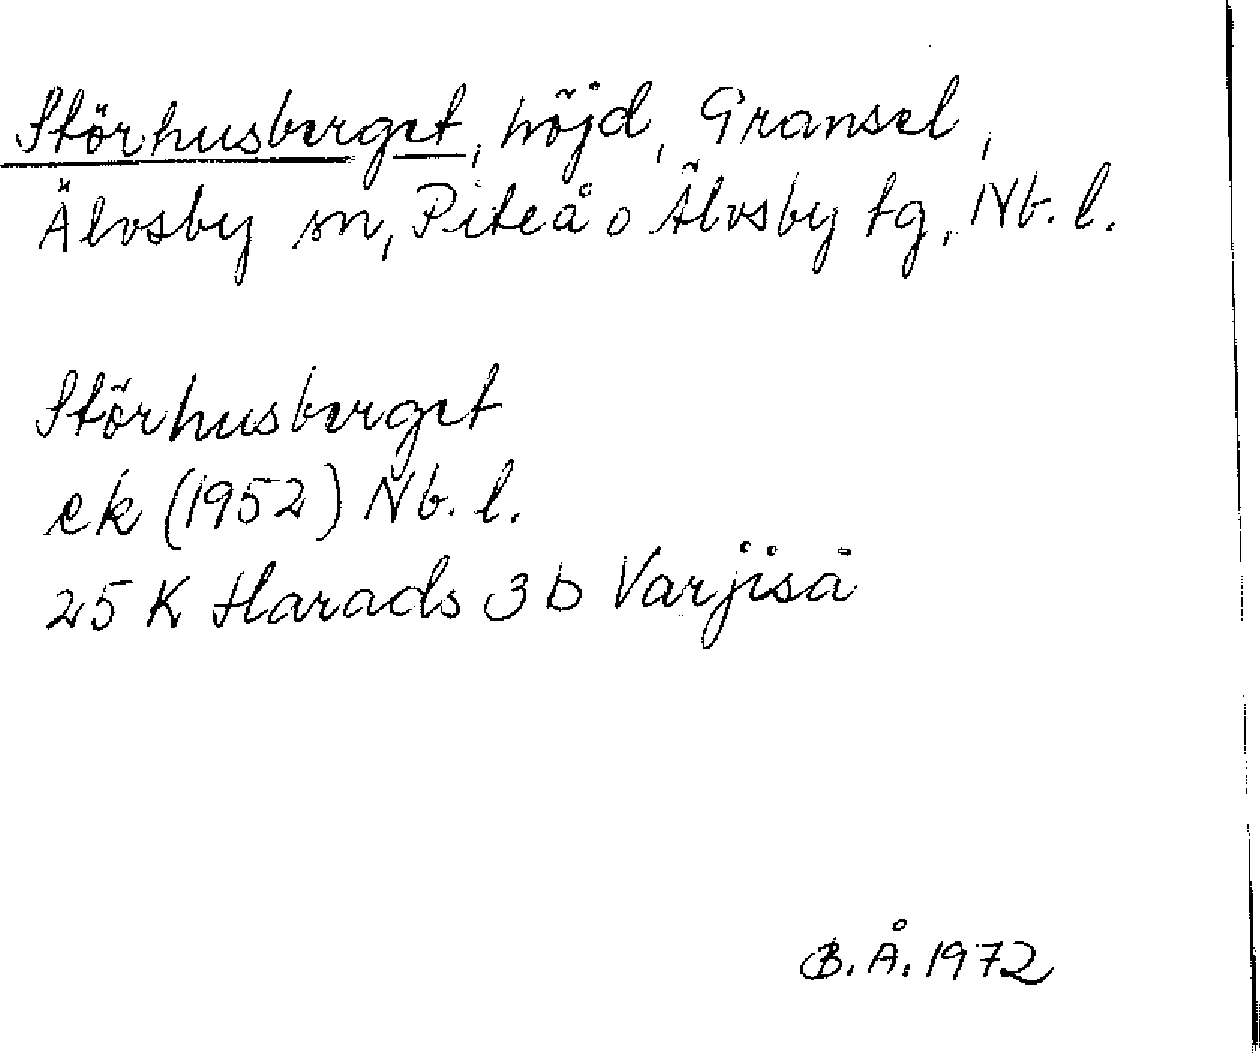 Störhusberget, höjd, Gransel,
Älvsby sn, Piteå o Älvsby tg, Nb. l.
Störhusberget
ek (1952) Nb. l.
25 K Harads 3 b Varjiså
B. Å. 1972